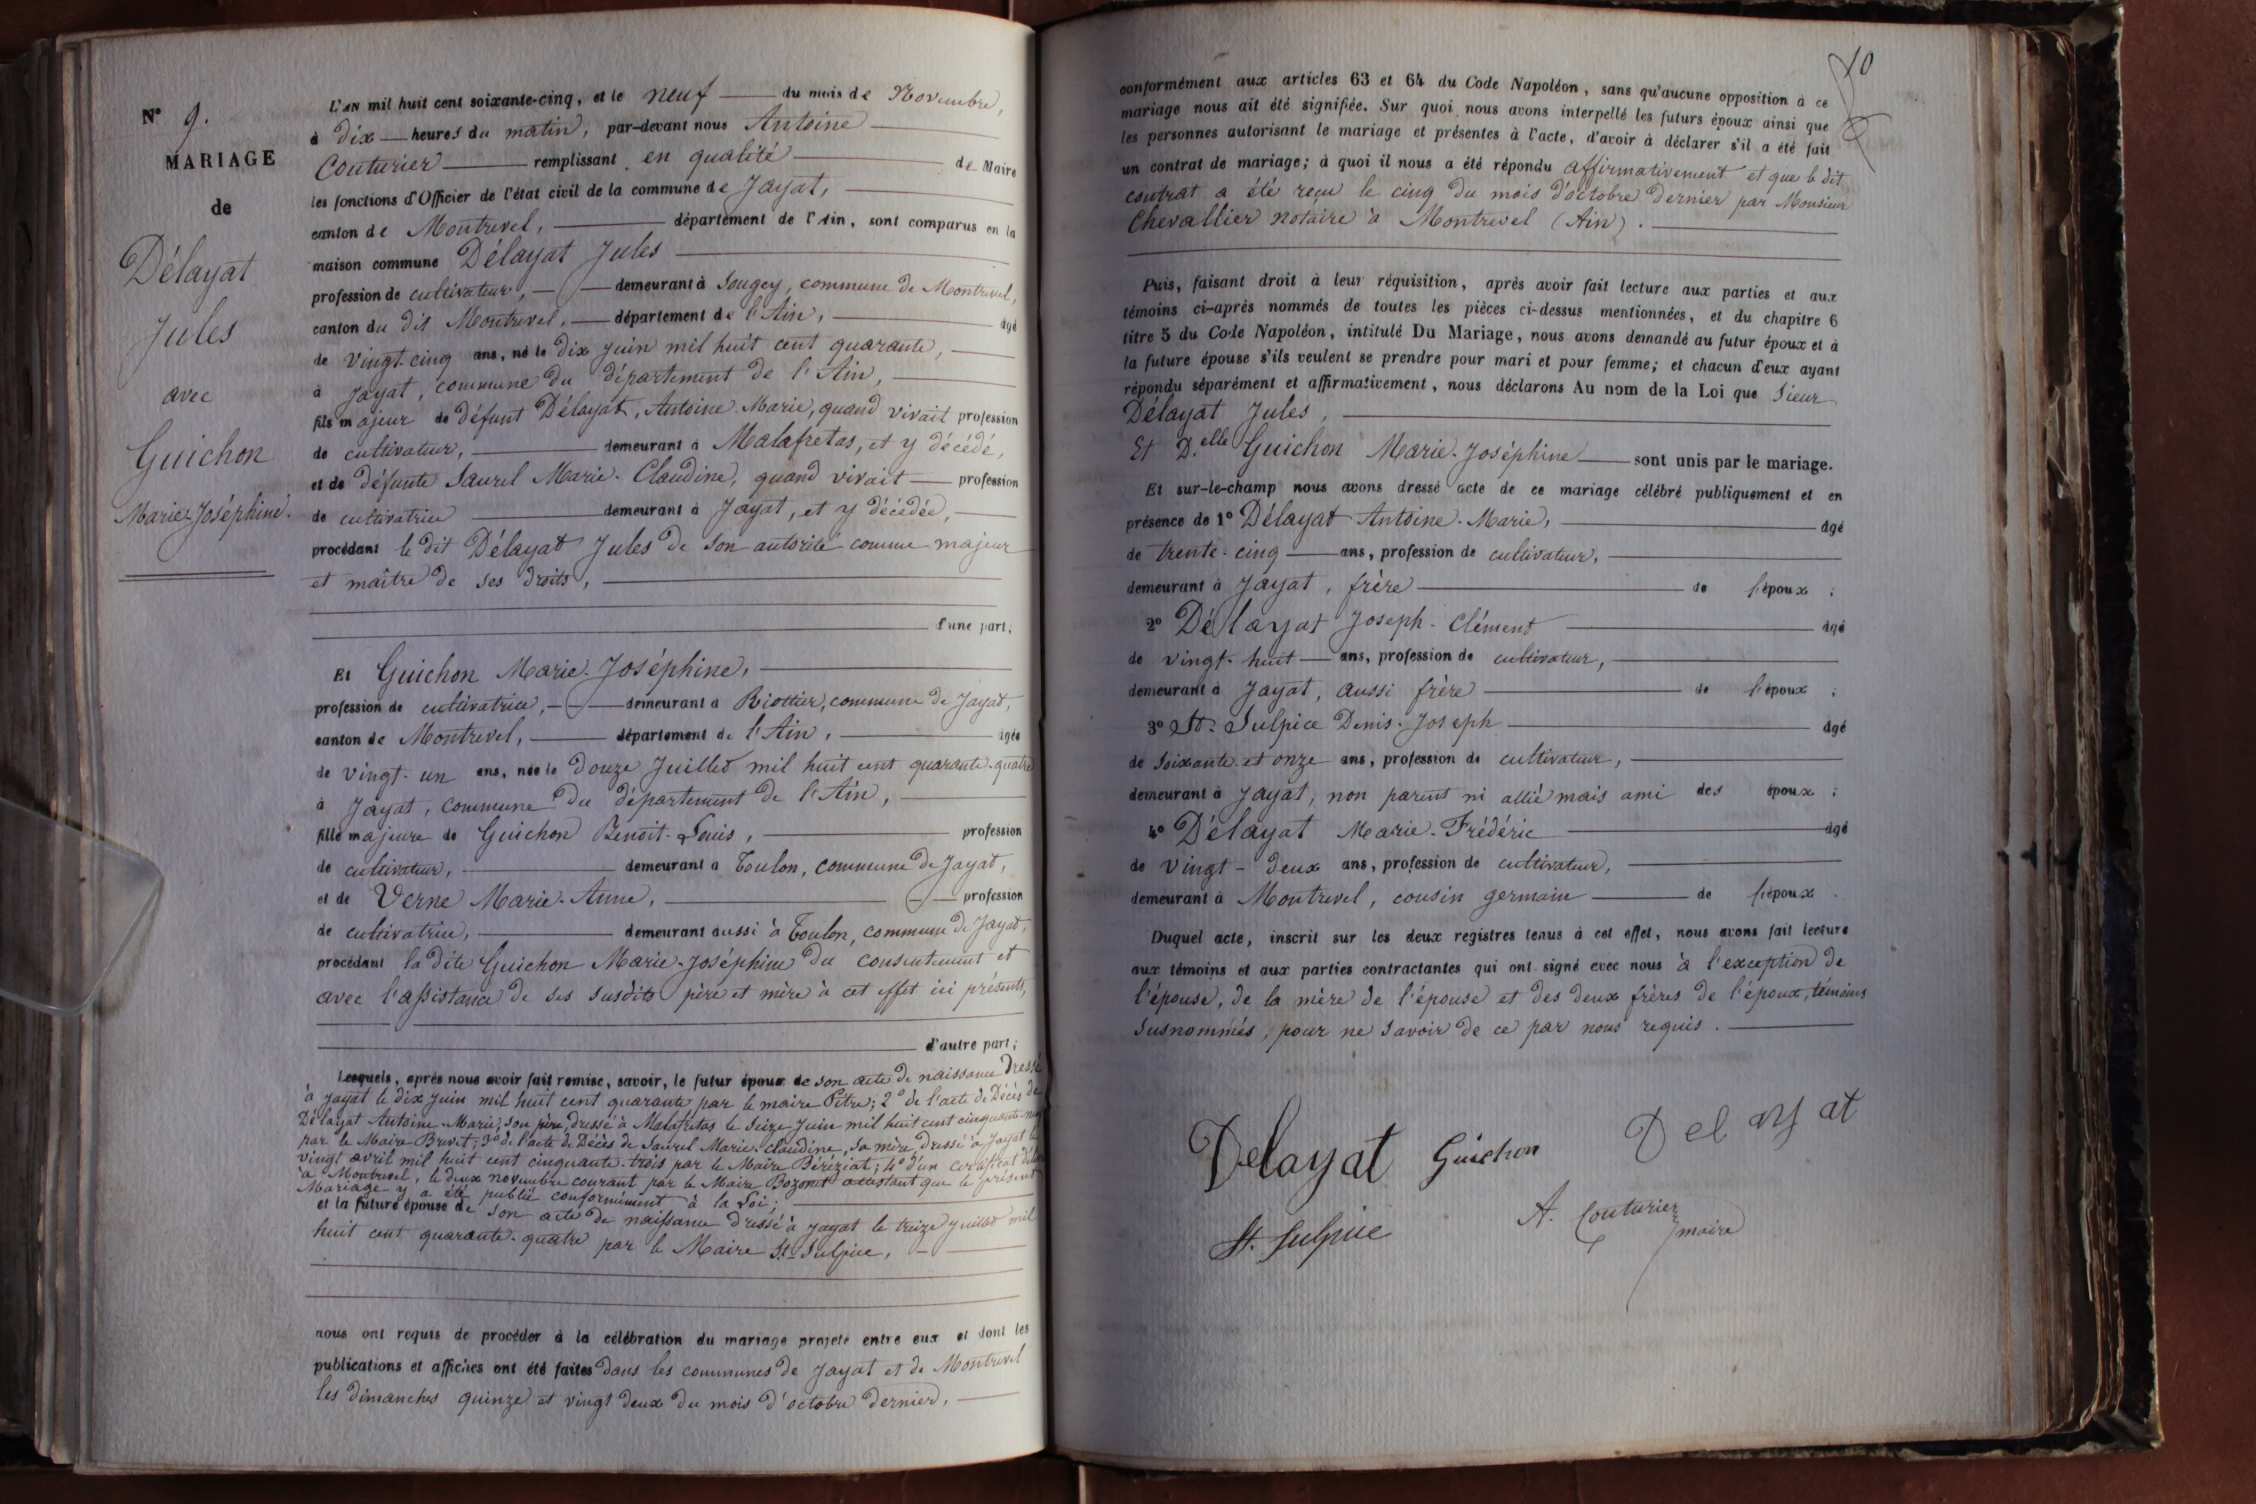 N° 9.
MARIAGE
de
Délayat
Jules
avec
Guichon
Marie-Joséphine.
L'AN mil huit cent soixante-cinq, et le neuf du mois de Novembre,
à dix heures du matin, par-devant nous Antoine
Couturier remplissant en qualité de Maire
les fonctions d'Officier de l'état civil de la commune de Jayat,
canton de Montrevel, département de l'Ain, sont comparus en la
maison commune Délayat Jules
profession de cultivateur, demeurant à Sougey, commune de Montrevel,
canton du dit Montrevel, département de l'Ain, âgé
de vingt-cinq ans, né le dix juin mil huit cent quarante,
à Jayat, commune du département de l'Ain,
fils majeur de défunt Délayat, Antoine-Marie, quand vivait profession
de cultivateur, demeurant à Malafretas, et y décédé,
et de défunte Saurel Marie-Claudine, quand vivait profession
de cultivatrice demeurant à Jayat, et y décédée,
procédant le dit Délayat Jules de son autorité comme majeur
et maître de ses droits,
d'une part;
Et Guichon Marie-Joséphine,
profession de cultivatrice, demeurant à Riottier, commune de Jayat,
canton de Montrevel, département de l'Ain, âgée
de vingt-un ans, née le douze Juillet mil huit cent quarante-quatre
à Jayat, commune du département de l'Ain,
fille majeure de Guichon Benoit-Louis, profession
de cultivateur, demeurant à Toulon, commune de Jayat,
et de Verne Marie-Anne, profession
de cultivatrice, demeurant aussi à Toulon, commune de Jayat,
procédant la dite Guichon Marie-Joséphine du consentement et
avec l'assistance de ses susdits père et mère à cet effet ici présents,
d'autre part;
Lesquels, après nous avoir fait remise, savoir, le futur époux de son acte de naissance dressé
à Jayat le dix juin mil huit cent quarante par le maire Pitre; 2° de l'acte de Décès de
Délayat Antoine-Marie, son père, dressé à Malafretas le seize Juin mil huit cent cinquante-
par le Maire Brevet; 3° de l'acte de Décès de Saurel Marie-Claudine, sa mère, dressé à Jayat le
vingt avril mil huit cent cinquante-trois par le Maire Béréziat; 4° d'un certificat délivré
à Montrevel, le deux novembre courant par le Maire Bozonet attestant que le présent
Mariage y a été publié conformément à la Loi;
et la future épouse de son acte de naissance dressé à Jayat le treize juillet mil
huit cent quarante-quatre par le Maire St-Sulpice,
nous ont requis de procéder à la célébration du mariage projeté entre eux et dont les
publications et affiches ont été faites dans les communes de Jayat et de Montrevel
les dimanches quinze et vingt deux du mois d'octobre dernier,
10
conformément aux articles 63 et 64 du Code Napoléon, sans qu'aucune opposition à ce
mariage nous ait été signifiée. Sur quoi nous avons interpellé les futurs époux ainsi que
les personnes autorisant le mariage et présentes à l'acte, d'avoir à déclarer s'il a été fait
un contrat de mariage; à quoi il nous a été répondu affirmativement et que le dit
contrat a été reçu le cinq du mois d'octobre dernier par Monsieur
Chevallier notaire à Montrevel (Ain).
Puis, faisant droit à leur réquisition, après avoir fait lecture aux parties et aux
témoins ci-après nommés de toutes les pièces ci-dessus mentionnées, et du chapitre 6
titre 5 du Code Napoléon, intitulé Du Mariage, nous avons demandé au futur époux et à
la future épouse s'ils veulent se prendre pour mari et pour femme; et chacun d'eux ayant
répondu séparément et affirmativement, nous déclarons Au nom de la Loi que Sieur
Délayat Jules,
Et D.elle Guichon Marie-Joséphine sont unis par le mariage.
Et sur-le-champ nous avons dressé acte de ce mariage célébré publiquement et en
présence de 1° Délayat Antoine-Marie, âgé
de trente-cinq ans, profession de cultivateur,
demeurant à Jayat, frère de l'époux;
2° Délayat Joseph-Clément âgé
de vingt-huit ans, profession de cultivateur,
demeurant à Jayat, aussi frère de l'époux;
3° St-Sulpice Denis-Joseph âgé
de soixante-et onze ans, profession de cultivateur,
demeurant à Jayat, non parent ni allié mais ami des époux;
4° Délayat Marie-Frédéric âgé
de vingt-deux ans, profession de cultivateur,
demeurant à Montrevel, cousin germain de l'époux.
Duquel acte, inscrit sur les deux registres tenus à cet effet, nous avons fait lecture
aux témoins et aux parties contractantes qui ont signé avec nous à l'exception de
l'épouse, de la mère de l'épouse et des deux frères de l'époux, témoins
susnommés, pour ne savoir de ce par nous requis.
Delayat Guichon Delayat
St. Sulpice A. Couturier
maire